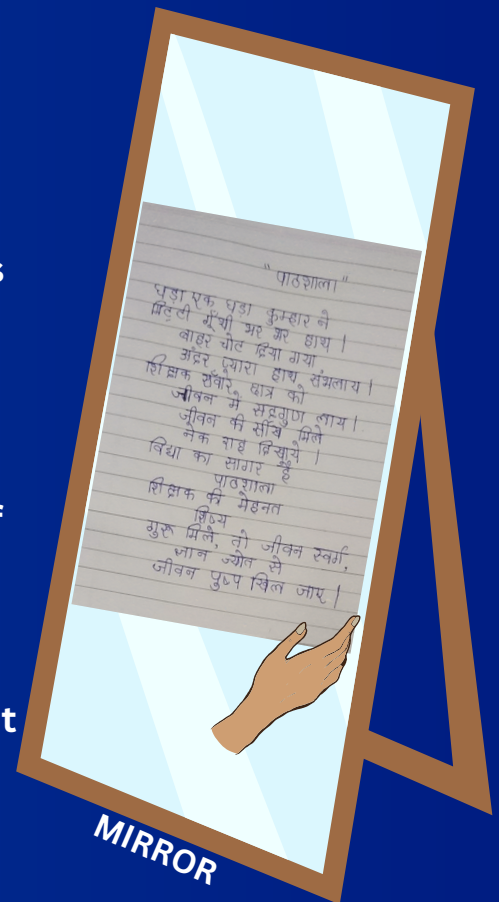 s
f
t
"पाठशाला"
घड़ा एक घड़ा कुम्हार ने
मिट्टी गूँथी भर भर हाथ।
बाहर चोट दिया गया,
अंदर प्यारा हाथ संभलाय।
शिक्षक सँवारे छात्र को
जीवन में सद्गुण लाय।
जीवन की सीख मिले
नेक राह दिखाये।
विद्या का सागर है
पाठशाला
शिक्षक की मेहनत
शिष्य
गुरू मिले, तो जीवन स्वर्ग,
ज्ञान ज्योत से
जीवन पुष्प खिल जाए।
MIRROR